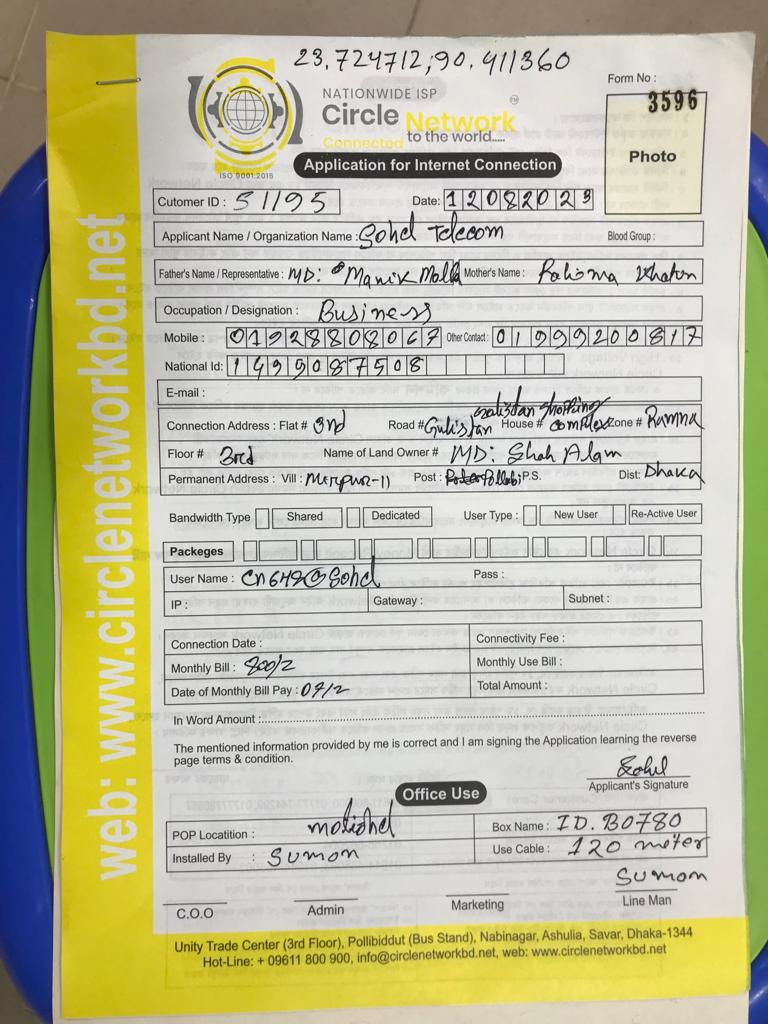 23.724712, 90.411360
NATIONWIDE ISP
Circle Network
TM
Connected to the world.....
ISO 9001:2015
Form No :
3596
Photo
Application for Internet Connection
Cutomer ID : 51195
Date: 12082023
Applicant Name / Organization Name : Sohel Telecom
Blood Group :
Father's Name / Representative : MD: Manik Molla Mother's Name : Rahima Khaton
Occupation / Designation : Business
Mobile : 01928808067 Other Contact : 01999200817
National Id: 1495087508
E-mail :
Connection Address : Flat # 3nd Road # Gulistan House # Gulistan Shopping Complex Zone # Ramna
Floor # 3rd Name of Land Owner # MD: Shah Alam
Permanent Address : Vill : Mirpur-11 Post : Pollobi P.S. Dist: Dhaka
Bandwidth Type Shared Dedicated User Type : New User Re-Active User
Packeges
User Name : cn642@Sohel Pass :
IP : Gateway : Subnet :
Connection Date : Connectivity Fee :
Monthly Bill : 800/2 Monthly Use Bill :
Date of Monthly Bill Pay : 07/2 Total Amount :
In Word Amount :
The mentioned information provided by me is correct and I am signing the Application learning the reverse
page terms & condition.
Sohel
Applicant's Signature
Office Use
POP Locatition : Box Name : ID. B0780
Installed By : Sumon Use Cable : 120 meter
Sumon
C.O.O Admin Marketing Line Man
Unity Trade Center (3rd Floor), Pollibiddut (Bus Stand), Nabinagar, Ashulia, Savar, Dhaka-1344
Hot-Line: + 09611 800 900, info@circlenetworkbd.net, web: www.circlenetworkbd.net
web: www.circlenetworkbd.net